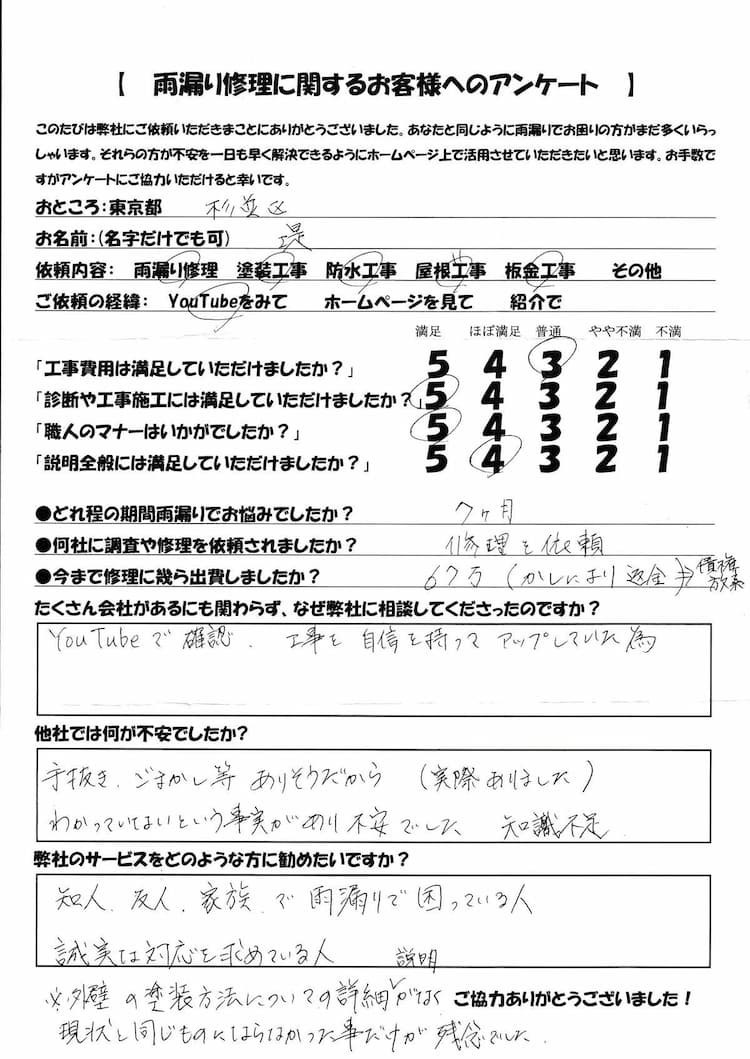 【 雨漏り修理に関するお客様へのアンケート 】
このたびは弊社にご依頼いただきまことにありがとうございました。あなたと同じように雨漏りでお困りの方がまだ多くいらっ
しゃいます。それらの方が不安を一日も早く解決できるようにホームページ上で活用させていただきたいと思います。お手数で
すがアンケートにご協力いただけると幸いです。
おところ:東京都 杉並区
お名前:(名字だけでも可) 堤
依頼内容: 雨漏り修理 塗装工事 防水工事 屋根工事 板金工事 その他
ご依頼の経緯: YouTubeをみて ホームページを見て 紹介で
満足 ほぼ満足 普通 やや不満 不満
「工事費用は満足していただけましたか?」 5 4 3 2 1
「診断や工事施工には満足していただけましたか?」 5 4 3 2 1
「職人のマナーはいかがでしたか?」 5 4 3 2 1
「説明全般には満足していただけましたか?」 5 4 3 2 1
●どれ程の期間雨漏りでお悩みでしたか? 7ヶ月
●何社に調査や修理を依頼されましたか? 修理を依頼
●今まで修理に幾ら出費しましたか? 67万(かしにより返金⇒債権放棄
たくさん会社があるにも関わらず、なぜ弊社に相談してくださったのですか?
YouTubeで確認、工事を自信を持ってアップしていた為
他社では何が不安でしたか?
手抜き、ごまかし等ありそうだから(実際ありました)
わかっていないという事実があり不安でした 知識不足
弊社のサービスをどのような方に勧めたいですか?
知人、友人、家族、で雨漏りで困っている人
誠実な対応を求めている人
※外壁の塗装方法についての詳細説明がなく ご協力ありがとうございました!
現状と同じものにはならなかった事だけが残念でした。